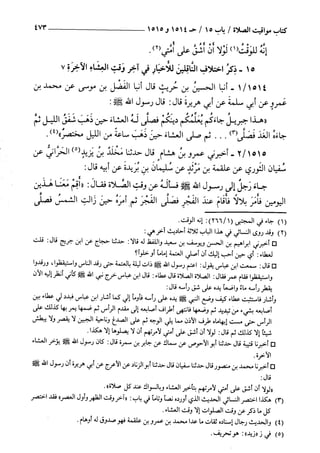 كتاب مواقيت الصلاة / باب ١٥ / حـ ١٥١٤ و ١٥١٥
٤٧٣
إنه للوقت(١) لولا أن أشق على أمتي(٢).
١٥ - ذكر اختلاف الناقلين للأخبار في آخر وقت العشاء الآخرة ٧
١/١٥١٤ - أنبا الحسين بن حريث قال أنبا الفضل بن موسى عن محمد بن
عمرو عن أبي سلمة عن أبي هريرة قال: قال رسول الله ﷺ:
هذا جبريل جاءكم يعلمكم دينكم فصلى له العشاء حين ذهب شفق الليل ثم
جاءه الغد فصلى(٣) ... ثم صلى العشاء حين ذهب ساعة من الليل مختصر(٤).
٢/١٥١٥ - أخبرني عمرو بن هشام قال حدثنا مخلد بن يزيد(٥) الحراني عن
سفيان الثوري عن علقمة بن مرثد عن سليمان بن بريدة عن أبيه قال:
جاء رجل إلى رسول الله ﷺ فسأله عن وقت الصلاة فقال: «أقم معنا هذين
اليومين فأمر بلالا فأقام عند الفجر فصلى الفجر ثم أمره حين زالت الشمس فصلى
(١) جاء في المجتبى (٢٦٦/١): إنه الوقت.
(٢) وقد روى النسائي في هذا الباب ثلاثة أحاديث أخر هي:
أخبرني إبراهيم بن الحسن ويوسف بن سعيد واللفظ له قالا: حدثنا حجاج عن ابن جريج قال: قلت
لعطاء: أي حين أحب إليك أن أصلي العتمة إماما أو خلوا؟
قال: سمعت ابن عباس يقول: أعتم رسول الله ﷺ ذات ليلة بالعتمة حتى رقد الناس واستيقظوا، ورقدوا
واستيقظوا فقام عمر فقال: الصلاة الصلاة قال عطاء: قال ابن عباس خرج نبي الله ﷺ كأني أنظر إليه الآن
يقطر رأسه ماء واضعا يده على شق رأسه قال:
وأشار فاستثبت عطاء كيف وضع النبي ﷺ يده على رأسه فأومأ إلي كما أشار ابن عباس فبدد لي عطاء بين
أصابعه بشيء من تبديد ثم وضعها فانتهى أطراف أصابعه إلى مقدم الرأس ثم ضمها يمر بها كذلك على
الرأس حتى مست إبهاماه طرف الأذن مما يلي الوجه ثم على الصدغ وناحية الجبين لا يقصر ولا يبطش
شيئا إلا كذلك ثم قال: لولا أن أشق على أمتي لأمرتهم أن لا يصلوها إلا هكذا.
أخبرنا قتيبة قال حدثنا أبو الأحوص عن سماك عن جابر بن سمرة قال: كان رسول الله ﷺ يؤخر العشاء
الآخرة.
أخبرنا محمد بن منصور قال حدثنا سفيان قال حدثنا أبو الزناد عن الأعرج عن أبي هريرة أن رسول الله ﷺ
قال:
«لولا أن أشق على أمتي لأمرتهم بتأخير العشاء وبالسواك عند كل صلاة».
(٣) هكذا اختصر النسائي الحديث الذي أورده نصا وتاما في باب: «آخر وقت الظهر وأول العصر» فقد اختصر
كل ما ذكر عن وقت الصلوات إلا وقت العشاء.
(٤) والحديث رجال إسناده ثقات ما عدا محمد بن عمرو بن علقمة فهو صدوق له أوهام.
(٥) في ز «زيد»: هو تحريف.